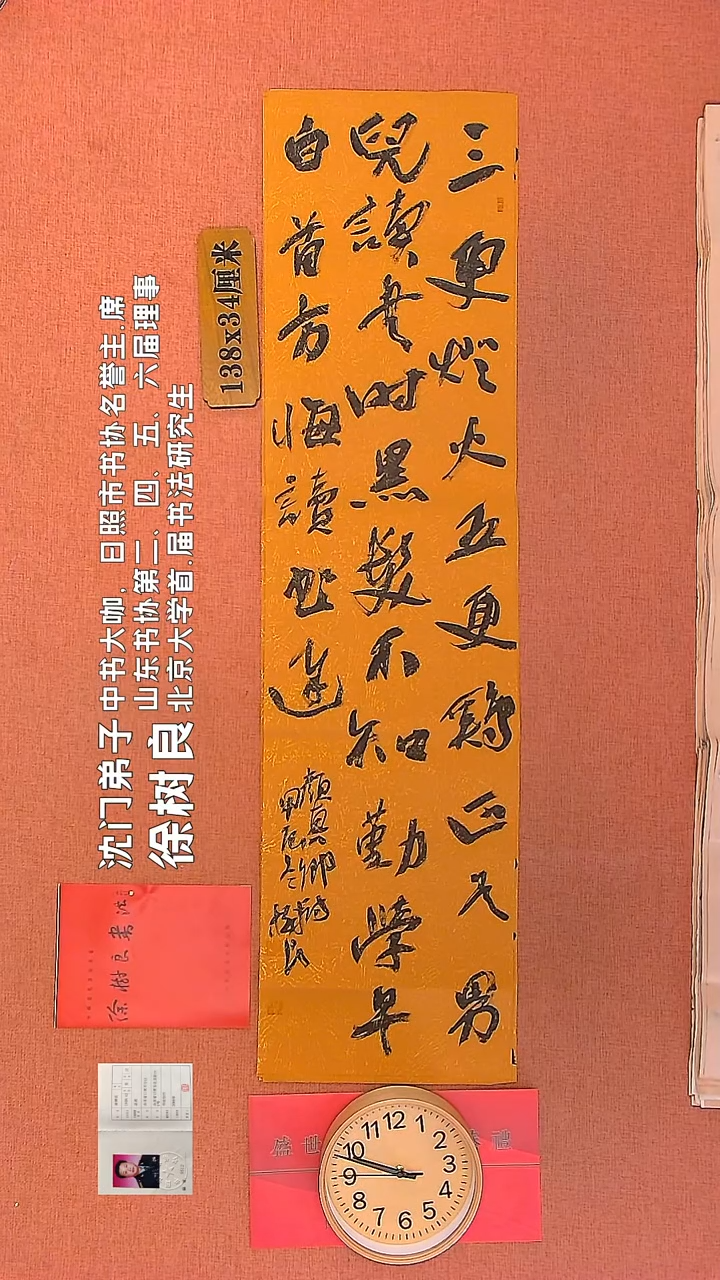 三更燈火五更鷄正是男
兒讀書時黑髮不知勤學早
白首方悔讀书遲
顏真卿詩
甲辰冬樹良
138x34厘米
沈门弟子
徐树良
中书大咖,日照市书协名誉主.席
山东书协第二、四、五、六届理事
北京大学首.届书法研究生
徐樹良書法
盛世
禮
12
1
2
3
4
5
6
7
8
9
10
11